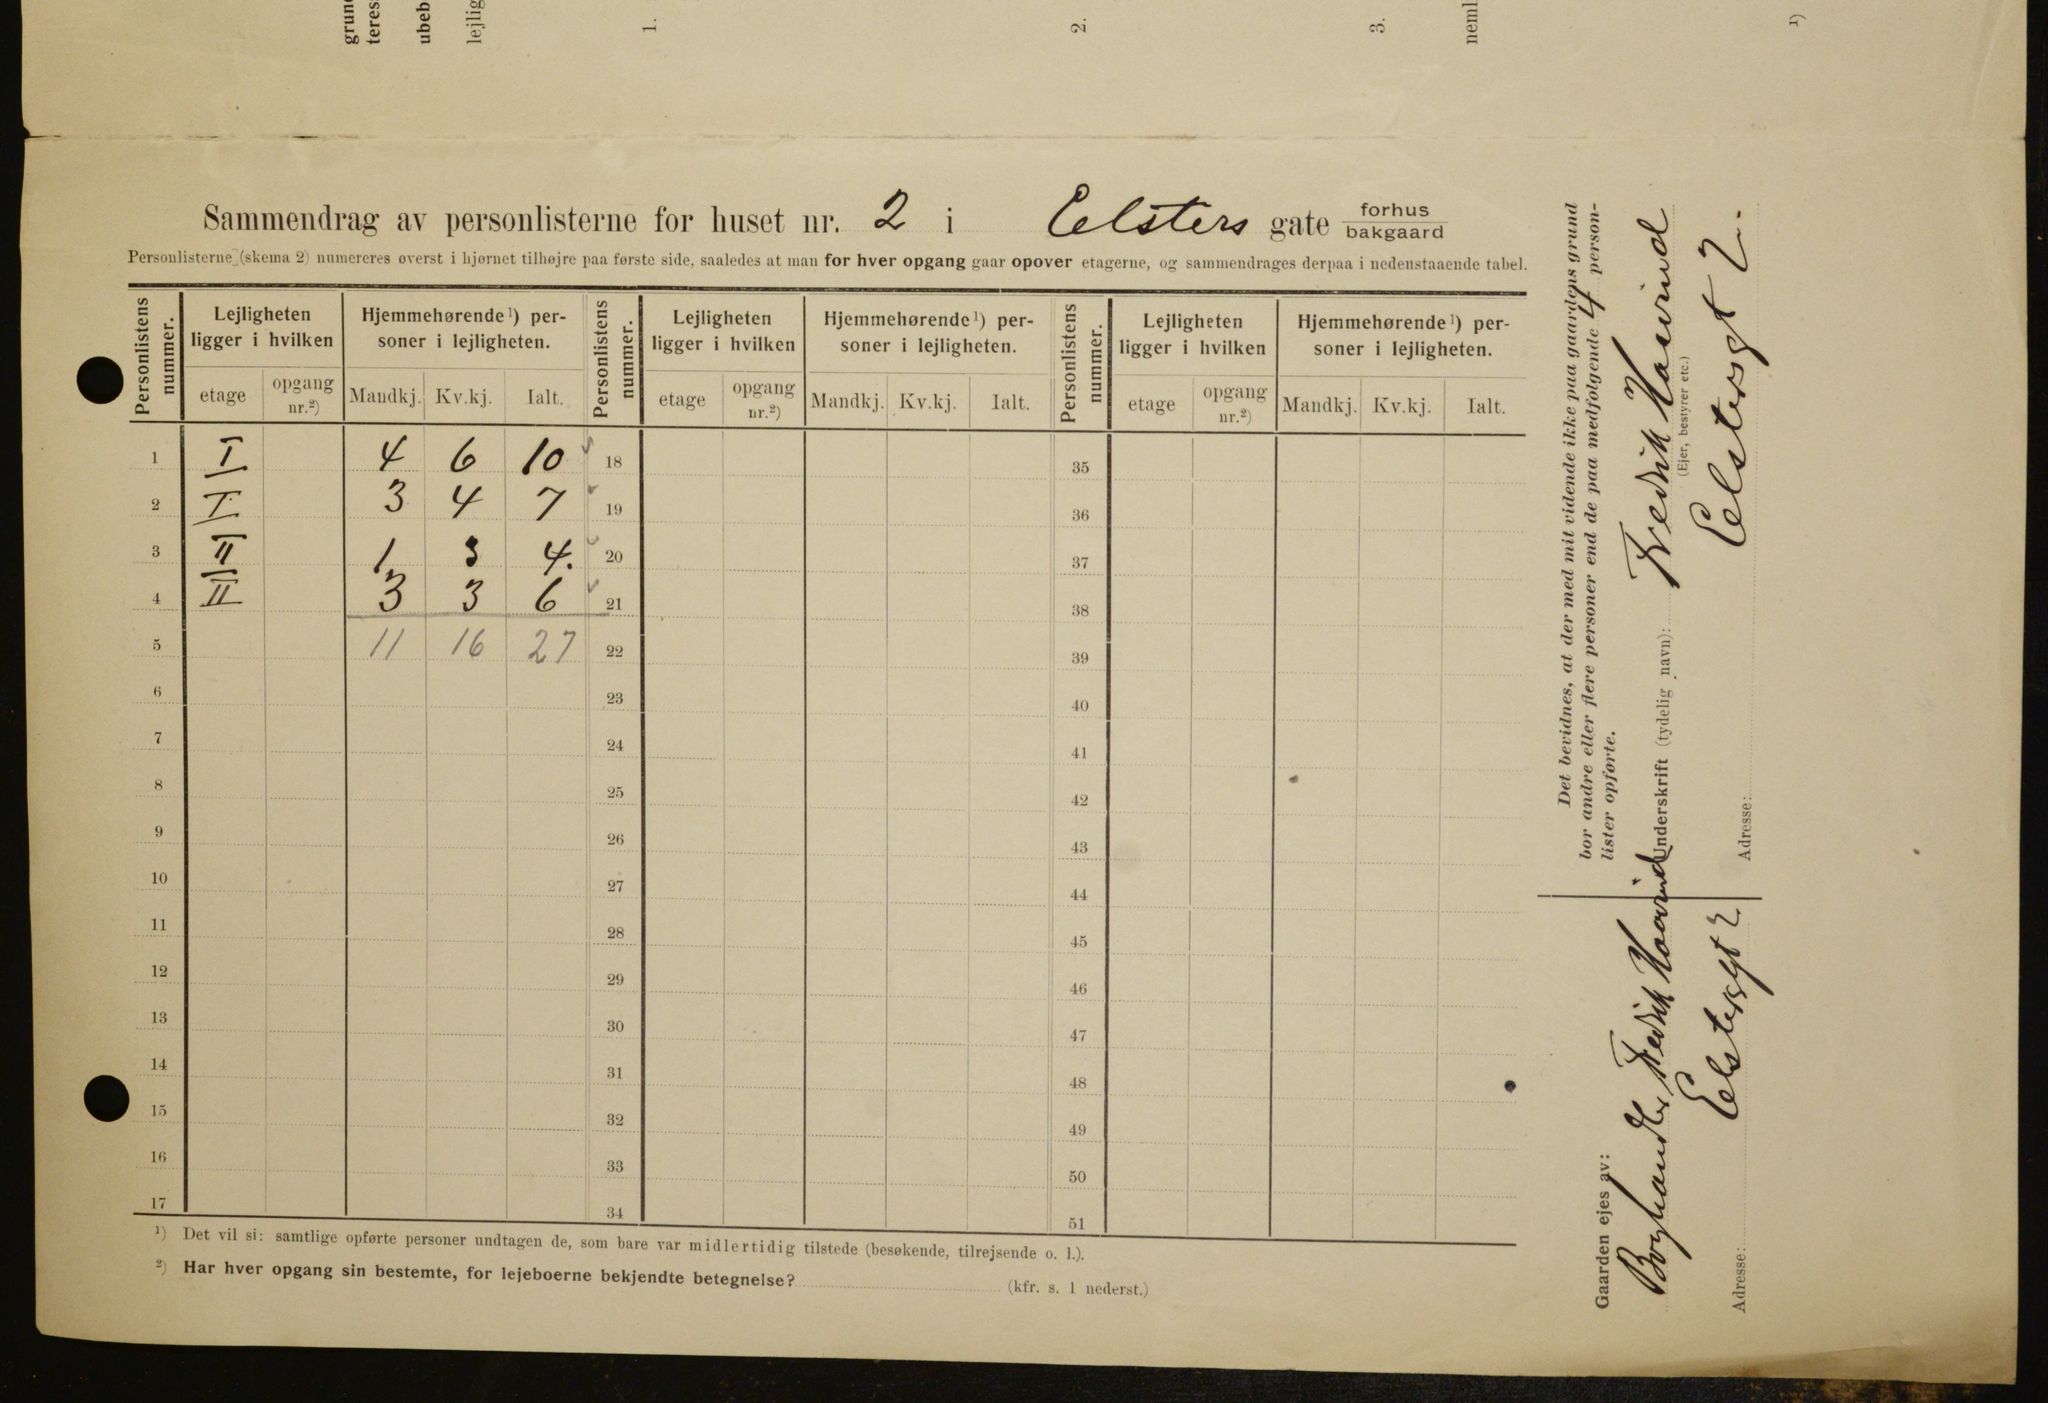 grun
teres
ubeb
lejlig
1.
2.
3.
neml
1)
Sammendrag av personlisterne for huset nr. 2 i Eelsters gate forhus bakgaard
Personlisterne (skema 2) numereres øverst i hjørnet tilhøjre paa første side, saaledes at man for hver opgang gaar opover etagerne, og sammendrages derpaa i nedenstaaende tabel.
Personlistens nummer. Lejligheten ligger i hvilken Hjemmehørende 1) personer i lejligheten. Personlistens nummer. Lejligheten ligger i hvilken Hjemmehørende 1) personer i lejligheten. Personlistens nummer. Lejligheten ligger i hvilken Hjemmehørende 1) personer i lejligheten.
etage opgang nr.2) Mandkj. Kv.kj. Ialt. etage opgang nr.2) Mandkj. Kv.kj. Ialt. etage opgang nr.2) Mandkj. Kv.kj. Ialt.
1 I 4 6 10 18 35
2 I 3 4 7 19 36
3 II 1 3 4. 20 37
4 II 3 3 6 21 38
5 11 16 27 22 39
6 23 40
7 24 41
8 25 42
9 26 43
10 27 44
11 28 45
12 29 46
13 30 47
14 31 48
15 32 49
16 33 50
17 34 51
1) Det vil si: samtlige opførte personer undtagen de, som bare var midlertidig tilstede (besøkende, tilrejsende o. l.).
2) Har hver opgang sin bestemte, for lejeboerne bekjendte betegnelse? (kfr. s. 1 nederst.)
Det bevidnes, at der med mit vidende ikke paa gaardens grund
bor andre eller flere personer end de paa medfølgende 4 person-
lister opførte.
Underskrift (tydelig navn): Fredrik Haavind
(Ejer, bestyrer etc.)
Adresse: Eelstersgt 2.
Gaarden ejes av:
Boghandler Fredrik Haavind
Adresse: Eelstersgt 2